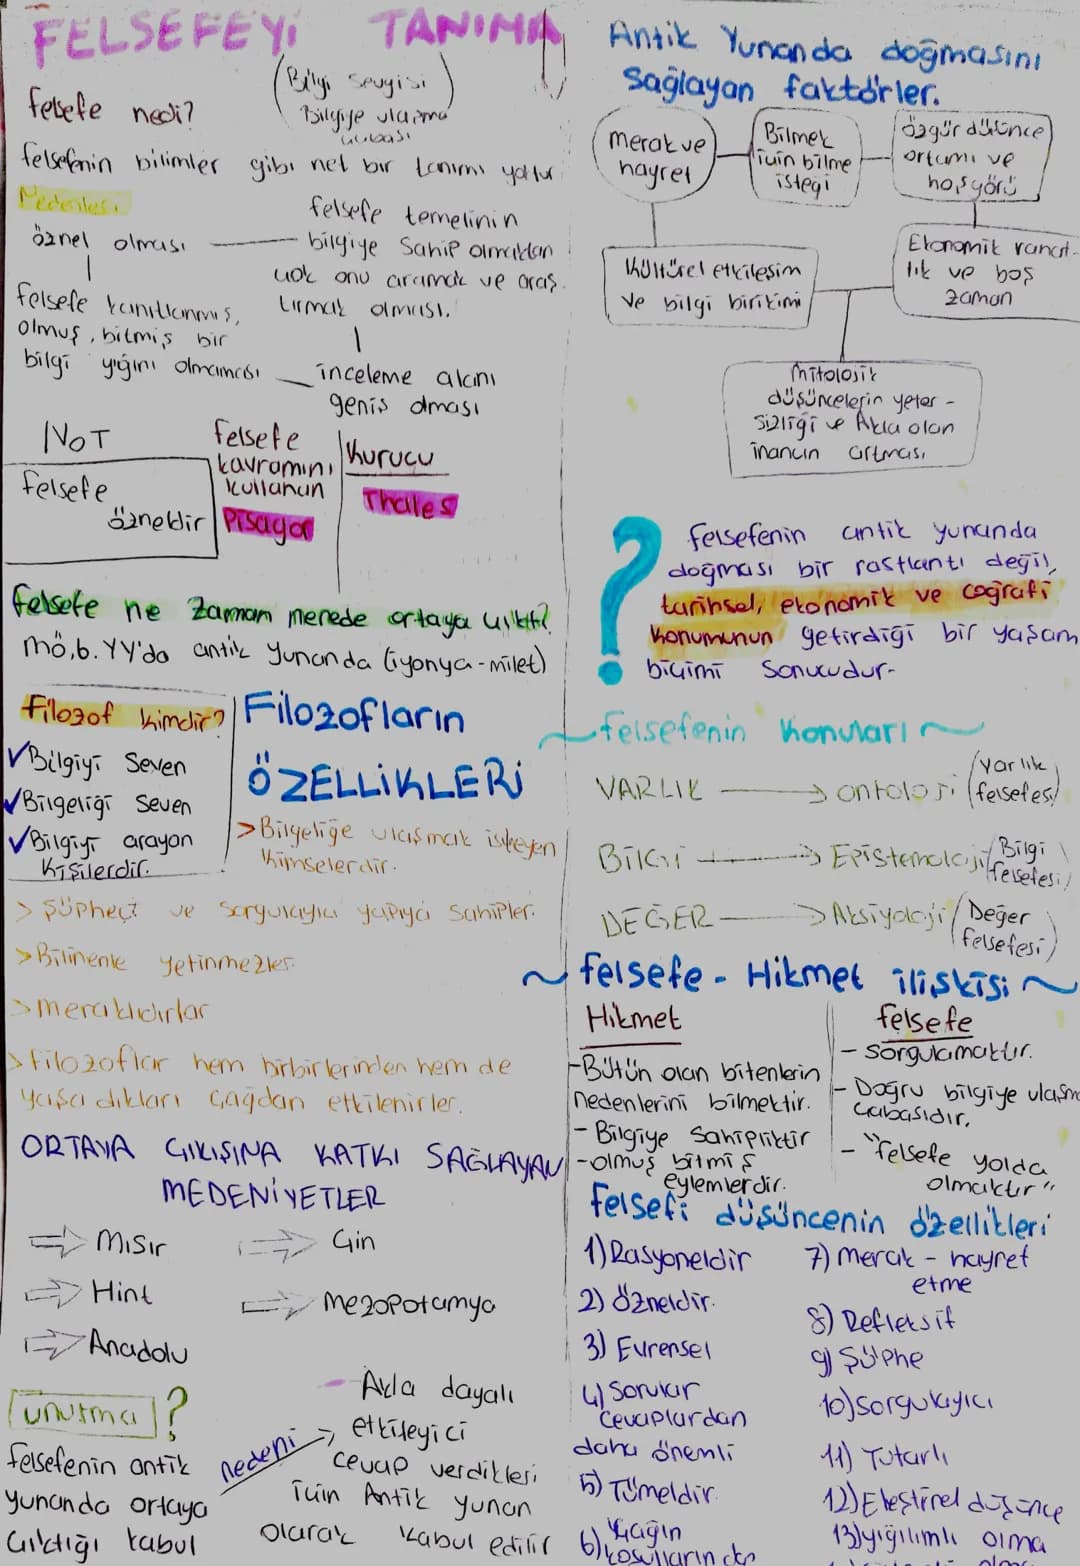 FELSEFEYİ TANIMA
felsefe nedi?
(Bilgi sevgisi
Bilgiye ulaşma
çabası)
felsefenin bilimler gibi net bir tanımı yoktur
Nedenlesi
öznel olması
felsefe temelinin
bilgiye sahip olmaktan
çok onu aramak ve araş-
tırmak olması.
felsefe kanıtlanmış,
olmuş, bitmiş bir
bilgi yığını olmaması
inceleme alanı
geniş olması
NOT
felsefe
özneldir
felsefe
kavramını
kullanan
Pisagor
Kurucu
Thales
felsefe ne zaman nerede ortaya çıktı?
mö,6. YY'da antik yunanda (iyonya-milet)
filozof kimdir?
✓Bilgiyi seven
✓Bilgeliği seven
✓Bilgiyi arayan
kişilerdir.
Filozofların
ÖZELLİKLERİ
>Bilgeliğe ulaşmak isteyen
kimselerdir.
> Şüpheci ve sorgulayıcı yapıya sahipler.
>Bilinenle yetinmezler.
>meraklıdırlar
>filozoflar hem birbirlerinden hem de
yaşadıkları çağdan etkilenirler.
ORTAYA ÇIKIŞINA KATKI SAĞLAYAN
MEDENİYETLER
⇒ Mısır
⇒ Çin
⇒ Hint
⇒ Mezopotamya
⇒ Anadolu
unutma ?
felsefenin antik
yunanda ortaya
çıktığı kabul
nedeni →
- Akla dayalı
etkileyici
cevap verdikleri
için Antik yunan
olarak kabul edilir
Antik Yunanda doğmasını
sağlayan faktörler.
merak ve
hayret
Bilmek
için bilme
isteği
özgür düşünce
ortamı ve
hoşgörü
Kültürel etkileşim
ve bilgi birikimi
Ekonomik rahat-
lık ve boş
zaman
mitolojik
düşüncelerin yeter-
sizliği ve Akla olan
inancın artması
? felsefenin antik yunanda
doğması bir rastlantı değil,
tarihsel, ekonomik ve coğrafi
konumunun getirdiği bir yaşam
biçimi sonucudur-
~felsefenin konuları~
VARLIK → ontoloji (varlık
felsefesi)
BİLGİ → Epistemoloji (Bilgi
felsefesi)
DEĞER → Aksiyoloji (Değer
felsefesi)
~ felsefe - Hikmet ilişkisi ~
Hikmet
-Bütün olan bitenlerin
nedenlerini bilmektir.
- Bilgiye sahipliktir
-olmuş bitmiş
eylemlerdir.
felsefe
- sorgulamaktır.
- Doğru bilgiye ulaşma
çabasıdır.
- "felsefe yolda
olmaktır"
felsefi düşüncenin özellikleri
1) Rasyoneldir
2) özneldir.
3) Evrensel
4) Sorular
cevaplardan
daha önemli
5) Tümeldir.
6) Çağın
koşullarından
7) merak - hayret
etme
8) Refleksif
9) Şüphe
10) sorgulayıcı
11) Tutarlı
12) Eleştirel düşünce
13) yığılımlı olma